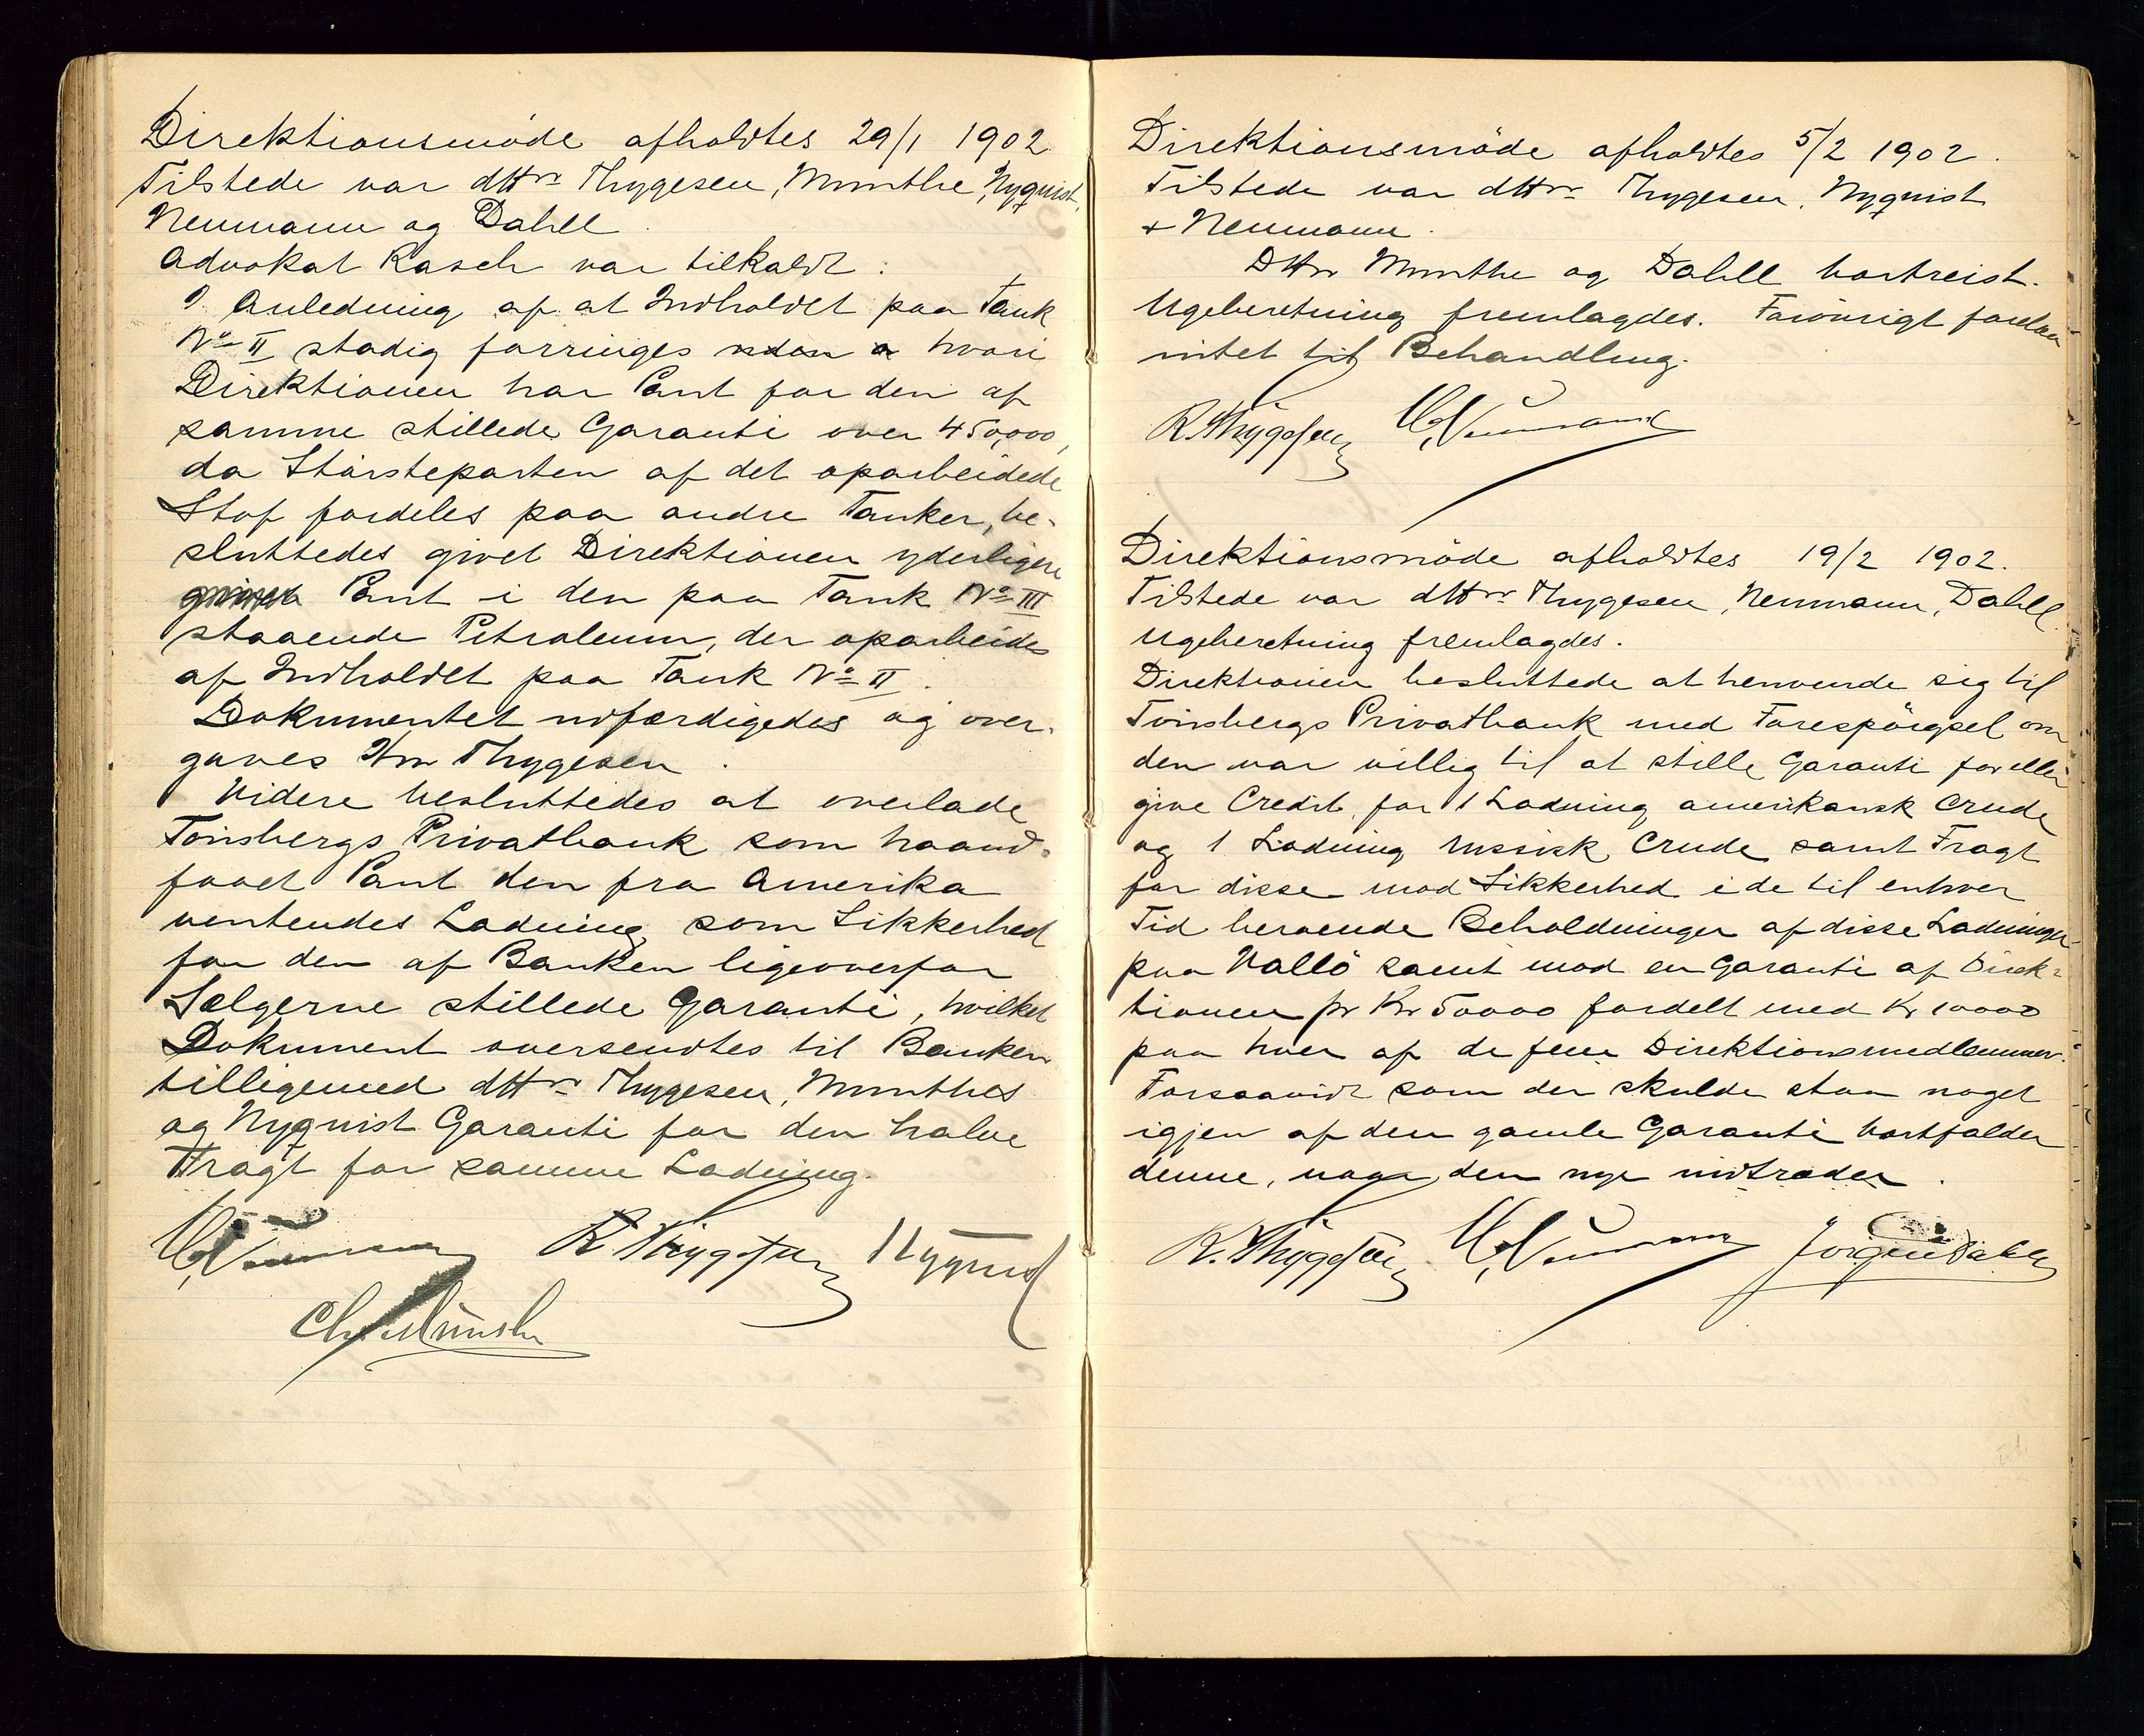 Direktionsmöde afholdtes 29/1 1902
Tilstede var dHrr Thygesen, Munthe, Nyquist,
Neumann og Dahll.
Advokat Rasch var tilkaldt:
I Anledning af at Indholdet paa Tank
No II stadig forringes hvori
Direktionen har Pant for den af
samme stillede Garanti over 450,000,
da Störsteparten af det oparbeidede
Stof fordeles paa andre Tanker, be-
sluttedes givet Direktionen yderligere
Pant i den paa Tank No III
staaende Petroleum, der oparbeides
af Indholdet paa Tank No II.
Dokumentet udfærdigedes og over-
gaves Hrr Thygesen.
Videre besluttedes at overlade
Tönsbergs Privatbank som haand-
faaet Pant den fra Amerika
ventendes Ladning som Sikkerhed
for den af Banken ligeoverfor
Sælgerne stillede Garanti, hvilket
Dokument oversendtes til Banken
tilligemed dHrr Thygesen, Munthes
og Nyquist Garanti for den halve
Fragt for samme Ladning.
Neumann R Thygesen Nyquist
Chr. Munthe
Direktionsmöde afholdtes 5/2 1902.
Tilstede var dHrr Thygesen, Nyquist
+ Neumann.
DHrr Munthe og Dahll bortreist.
Ugeberetning fremlagdes. Forövrigt forelaa
intet til Behandling.
R. Thygesen Neumann
Direktionsmöde afholdtes 19/2 1902.
Tilstede var dHrr Thygesen, Neumann, Dahll.
Ugeberetning fremlagdes.
Direktionen besluttede at henvende sig til
Tönsbergs Privatbank med Forespörgsel om
den var villig til at stille Garanti for eller
give Credit for 1 Ladning amerikansk Crude
og 1 Ladning russisk Crude samt Fragt
for disse mod Sikkerhed i de til enhver
Tid beroende Beholdninger af disse Ladninger
paa Vallö samt mod en Garanti af Direk-
tionen pr Kr 50000 fordelt med Kr 10000
paa hver af de fem Direktionsmedlemmer.
Forsaavidt som der skulde staa noget
igjen af den gamle Garanti bortfalder
denne, naar den nye indtræder.
R. Thygesen Neumann Jörgen Dahll